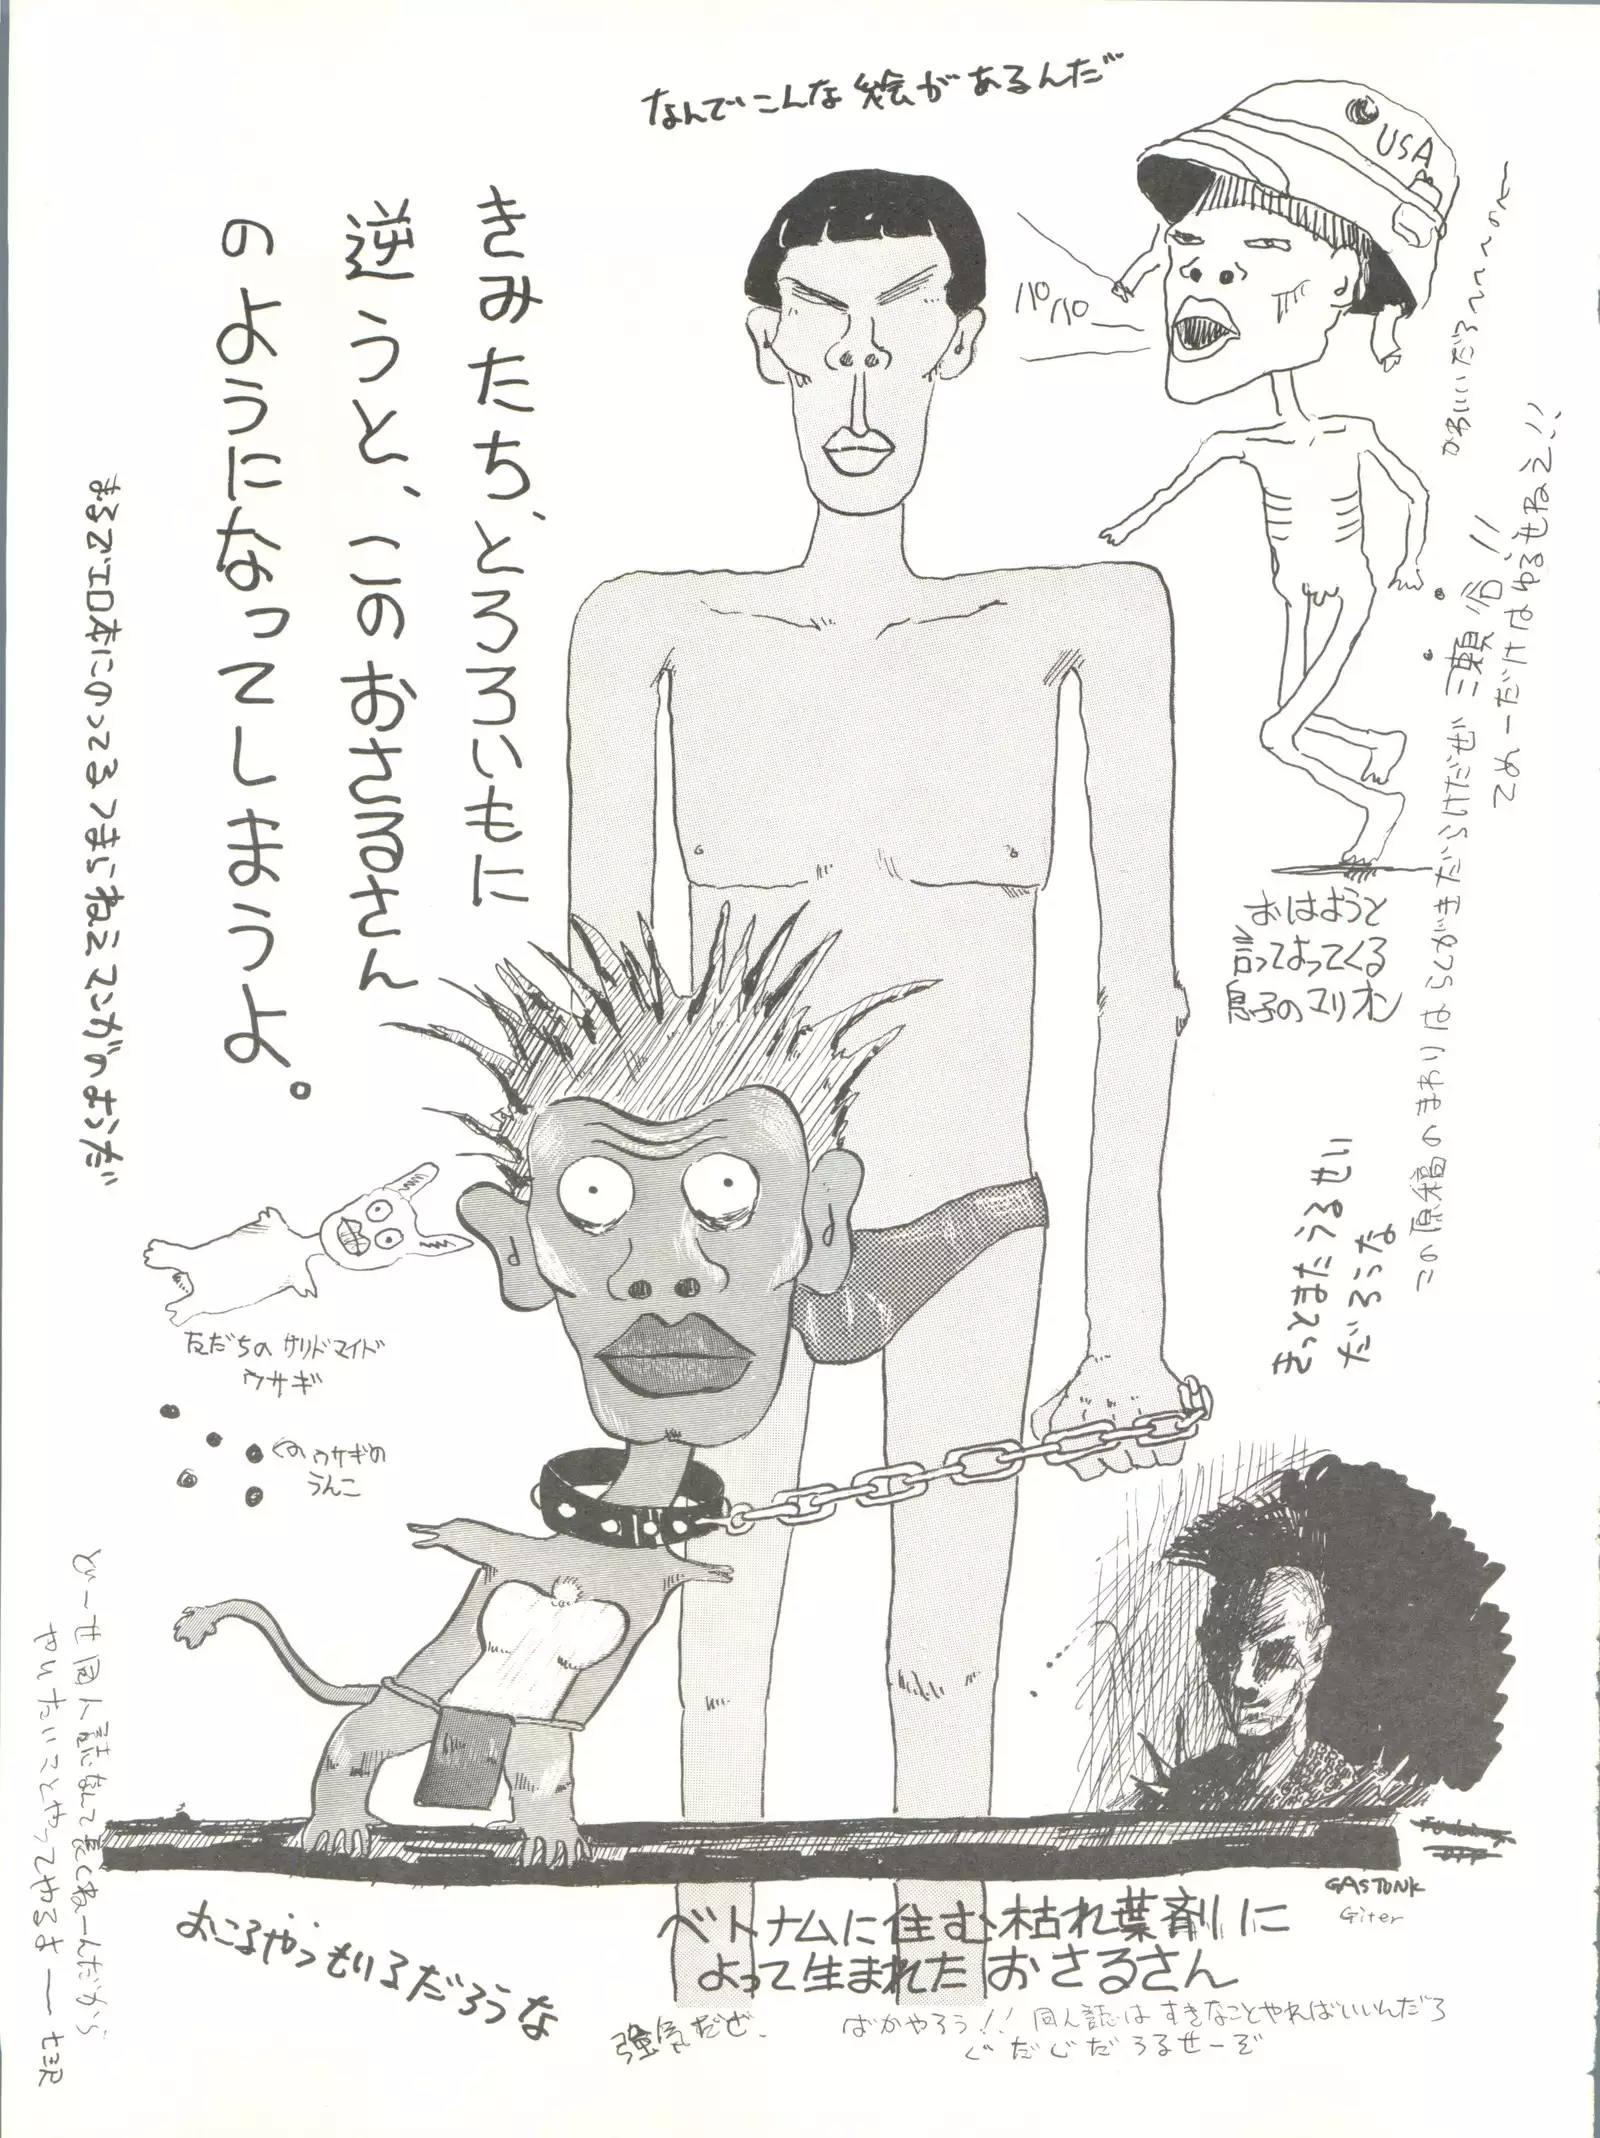 なんでこんな絵があるんだ
USA
パパー
きみたち、とろろいもに
逆うと、このおさるさん
のようになってしまうよ。
まるでエロ本にのってるつまらねえマンガのようだ
かわいいだろ〜〜〜のれー
てめーだけはゆるせねえ!!
この原稿のまわりはらくがきだらけだぜ 三瀬谷!!
おはようと
言ってよってくる
息子のマリオン
きっとまたうるせい
だろうな
友だちの サリドマイド
ウサギ
ウサギの
うんこ
どーせ同人誌になんて長くねーんだから
やりたいことやってやるさ ──
おこるやつもいるだろうな
GASTUNK
Giter
ベトナムに住む枯れ葉剤に
よって生まれた おさるさん
強気だぜ、
ばかやろう!! 同人誌は すきなことやればいいんだろ
ぐだぐだ うるせーぞ